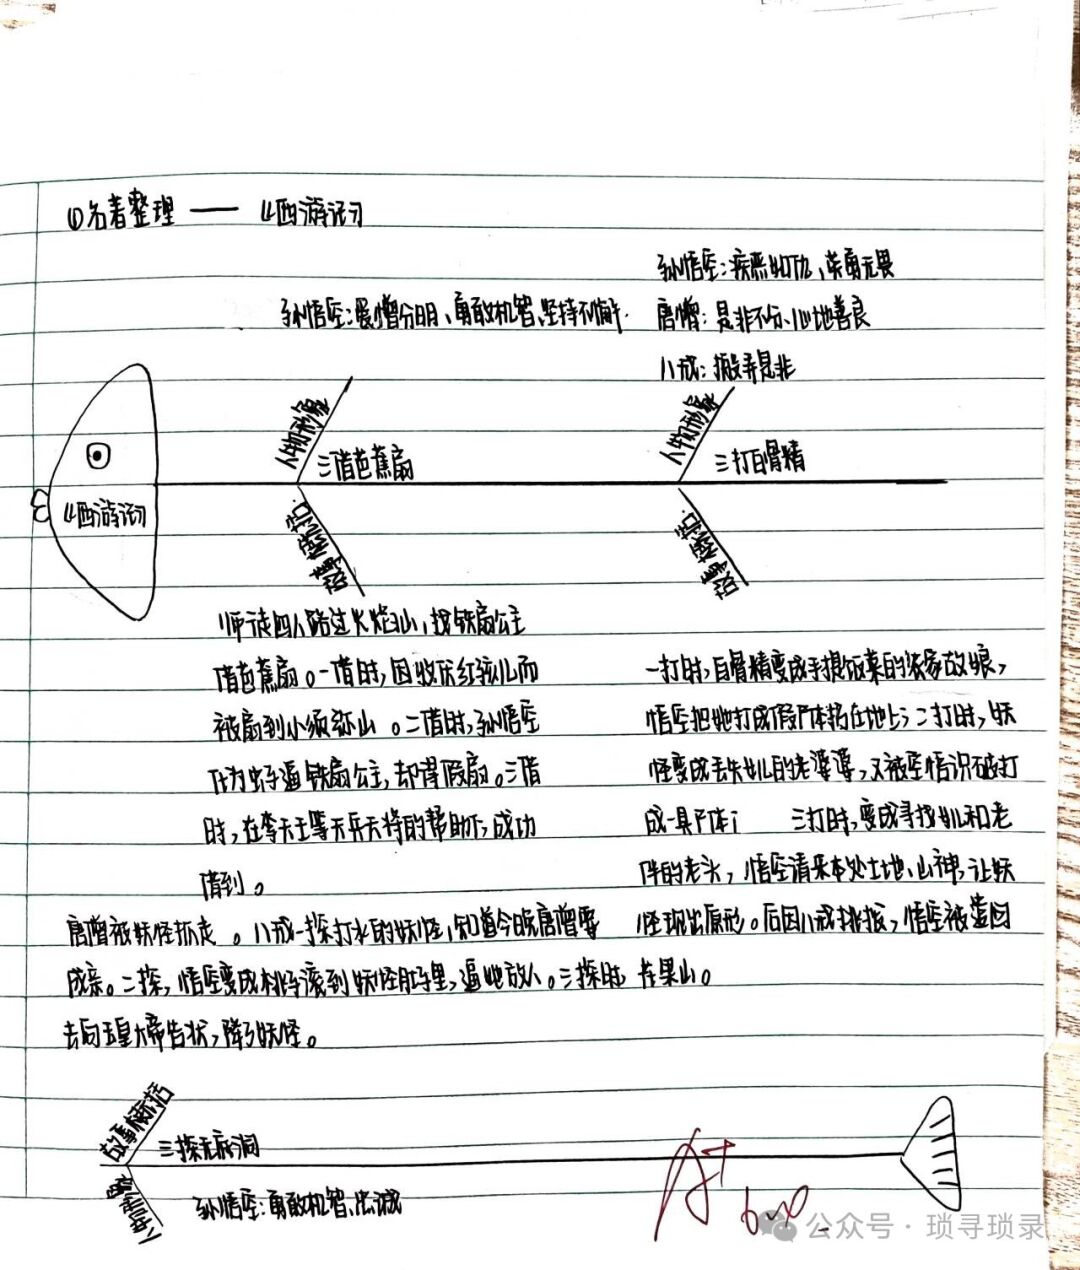 ①名著整理 —— 《西游记》
孙悟空：疾恶如仇、英勇无畏
孙悟空：爱憎分明、勇敢机智、坚持不懈.
唐僧：是非不分、心地善良
八戒：搬弄是非
人物形象
三借芭蕉扇
人物形象
三打白骨精
《西游记》
故事概括.
故事概括.
师徒四人路过火焰山，找铁扇公主
借芭蕉扇。一借时，因收伏红孩儿而
被扇到小须弥山。二借时，孙悟空
化为虫子逼铁扇公主，却得假扇。三借
时，在李天王等天兵天将的帮助下，成功
借到。
一打时，白骨精变成手提饭菜的农家姑娘，
悟空把她打成假尸体扔在地上；二打时，妖
怪变成丢失女儿的老婆婆，又被空悟识破打
成一具尸体； 三打时，变成寻找女儿和老
伴的老头，悟空请来本处土地、山神，让妖
怪现出原形。后因八戒挑拨，悟空被逐回
花果山。
唐僧被妖怪抓走。八戒一探打水的妖怪，知道今晚唐僧要
成亲。二探，悟空变成桃子滚到妖怪肚子里，逼她放人。三探时
去向玉皇大帝告状，降了妖怪。
故事概括
三探无底洞
人物形象
孙悟空：勇敢机智、忠诚
A+
公众号 · 琐寻琐录